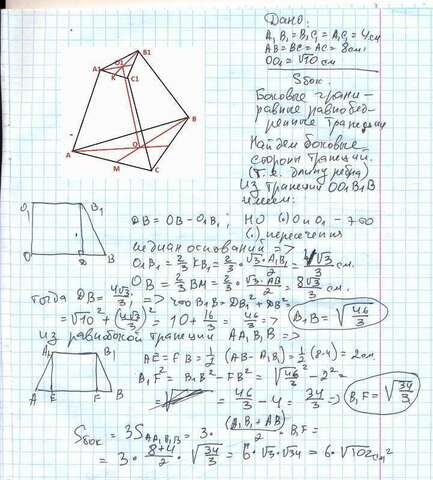 Дано:
A₁B₁=B₁C₁=A₁C₁=4см
AB=BC=AC=8см
OO₁=√10см
Sбок.
Боковые грани-
равные равнобед-
ренные трапеции
Найдем боковые
стороны трапеции.
(т.е. длину ребра)
Из трапеции OO₁B₁B
имеем:
B1
O1
A1
K
C1
B
O
A
M
C
O₁
B₁
O
D
B
DB = OB - O₁B₁; но (.) O и O₁ -
(.) пересечения
медиан оснований =>
O₁B₁ = 2/3 KB₁ = 2/3 · √3·A₁B₁/2 = 4√3/3 см.
OB = 2/3 BM = 2/3 · √3·AB/2 = 8√3/3 см.
тогда DB = 4√3/3, => что B₁B² = DB₁² + DB² =
= √10² + (4√3/3)² = 10 + 16/3 = 46/3 => B₁B = √46/3
Из равнобокой трапеции AA₁B₁B =>
A₁
B₁
A
E
F
B
AE = FB = 1/2 (AB - A₁B₁) = 1/2 (8-4) = 2см.
B₁F² = B₁B² - FB² = √46/3² - 2² =
= 46/3 - 4 = 34/3 => B₁F = √34/3
Sбок = 3SAA₁B₁B = 3 · (A₁B₁ + AB)/2 · B₁F =
= 3 · 8+4/2 · √34/3 = 6·√3·√34 = 6·√102 см²